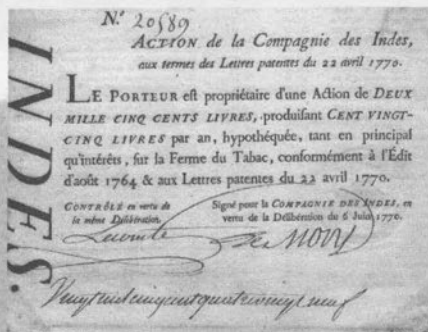 INDES.
N.º 20589
ACTION de la Compagnie des Indes,
aux termes des Lettres patentes du 22 avril 1770.
LE PORTEUR eſt propriétaire d'une Action de DEUX
MILLE CINQ CENTS LIVRES, produiſant CENT VINGT-
CINQ LIVRES par an, hypothéquée, tant en principal
qu'intérêts, ſur la Ferme du Tabac, conformément à l'Édit
d'août 1764 & aux Lettres patentes du 22 avril 1770.
CONTRÔLÉ en vertu de
la même Délibération.
Signé pour la COMPAGNIE DES INDES, en
vertu de la Délibération du 6 Juin 1770.
De MORY
Vingt mil cinq cent quatre vingt neuf